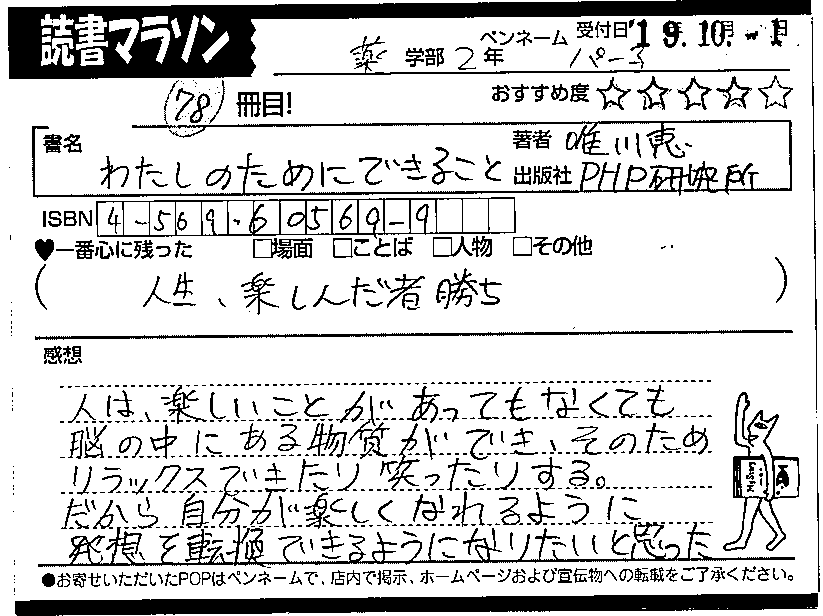 読書マラソン
受付日'19.10.-1
薬 学部 2年 ペンネーム パーチ
78 冊目! おすすめ度 ☆☆☆☆☆
書名 わたしのためにできること
著者 唯川恵
出版社 PHP研究所
ISBN 4-569-60569-9
♥一番心に残った □場面 □ことば □人物 □その他
( 人生、楽しんだ者勝ち )
感想
人は、楽しいことがあってもなくても
脳の中にある物質ができ、そのため
リラックスできたり笑ったりする。
だから自分が楽しくなれるように
発想を転換できるようになりたいと思った
●お寄せいただいたPOPはペンネームで、店内で掲示、ホームページおよび宣伝物への転載をご了承ください。